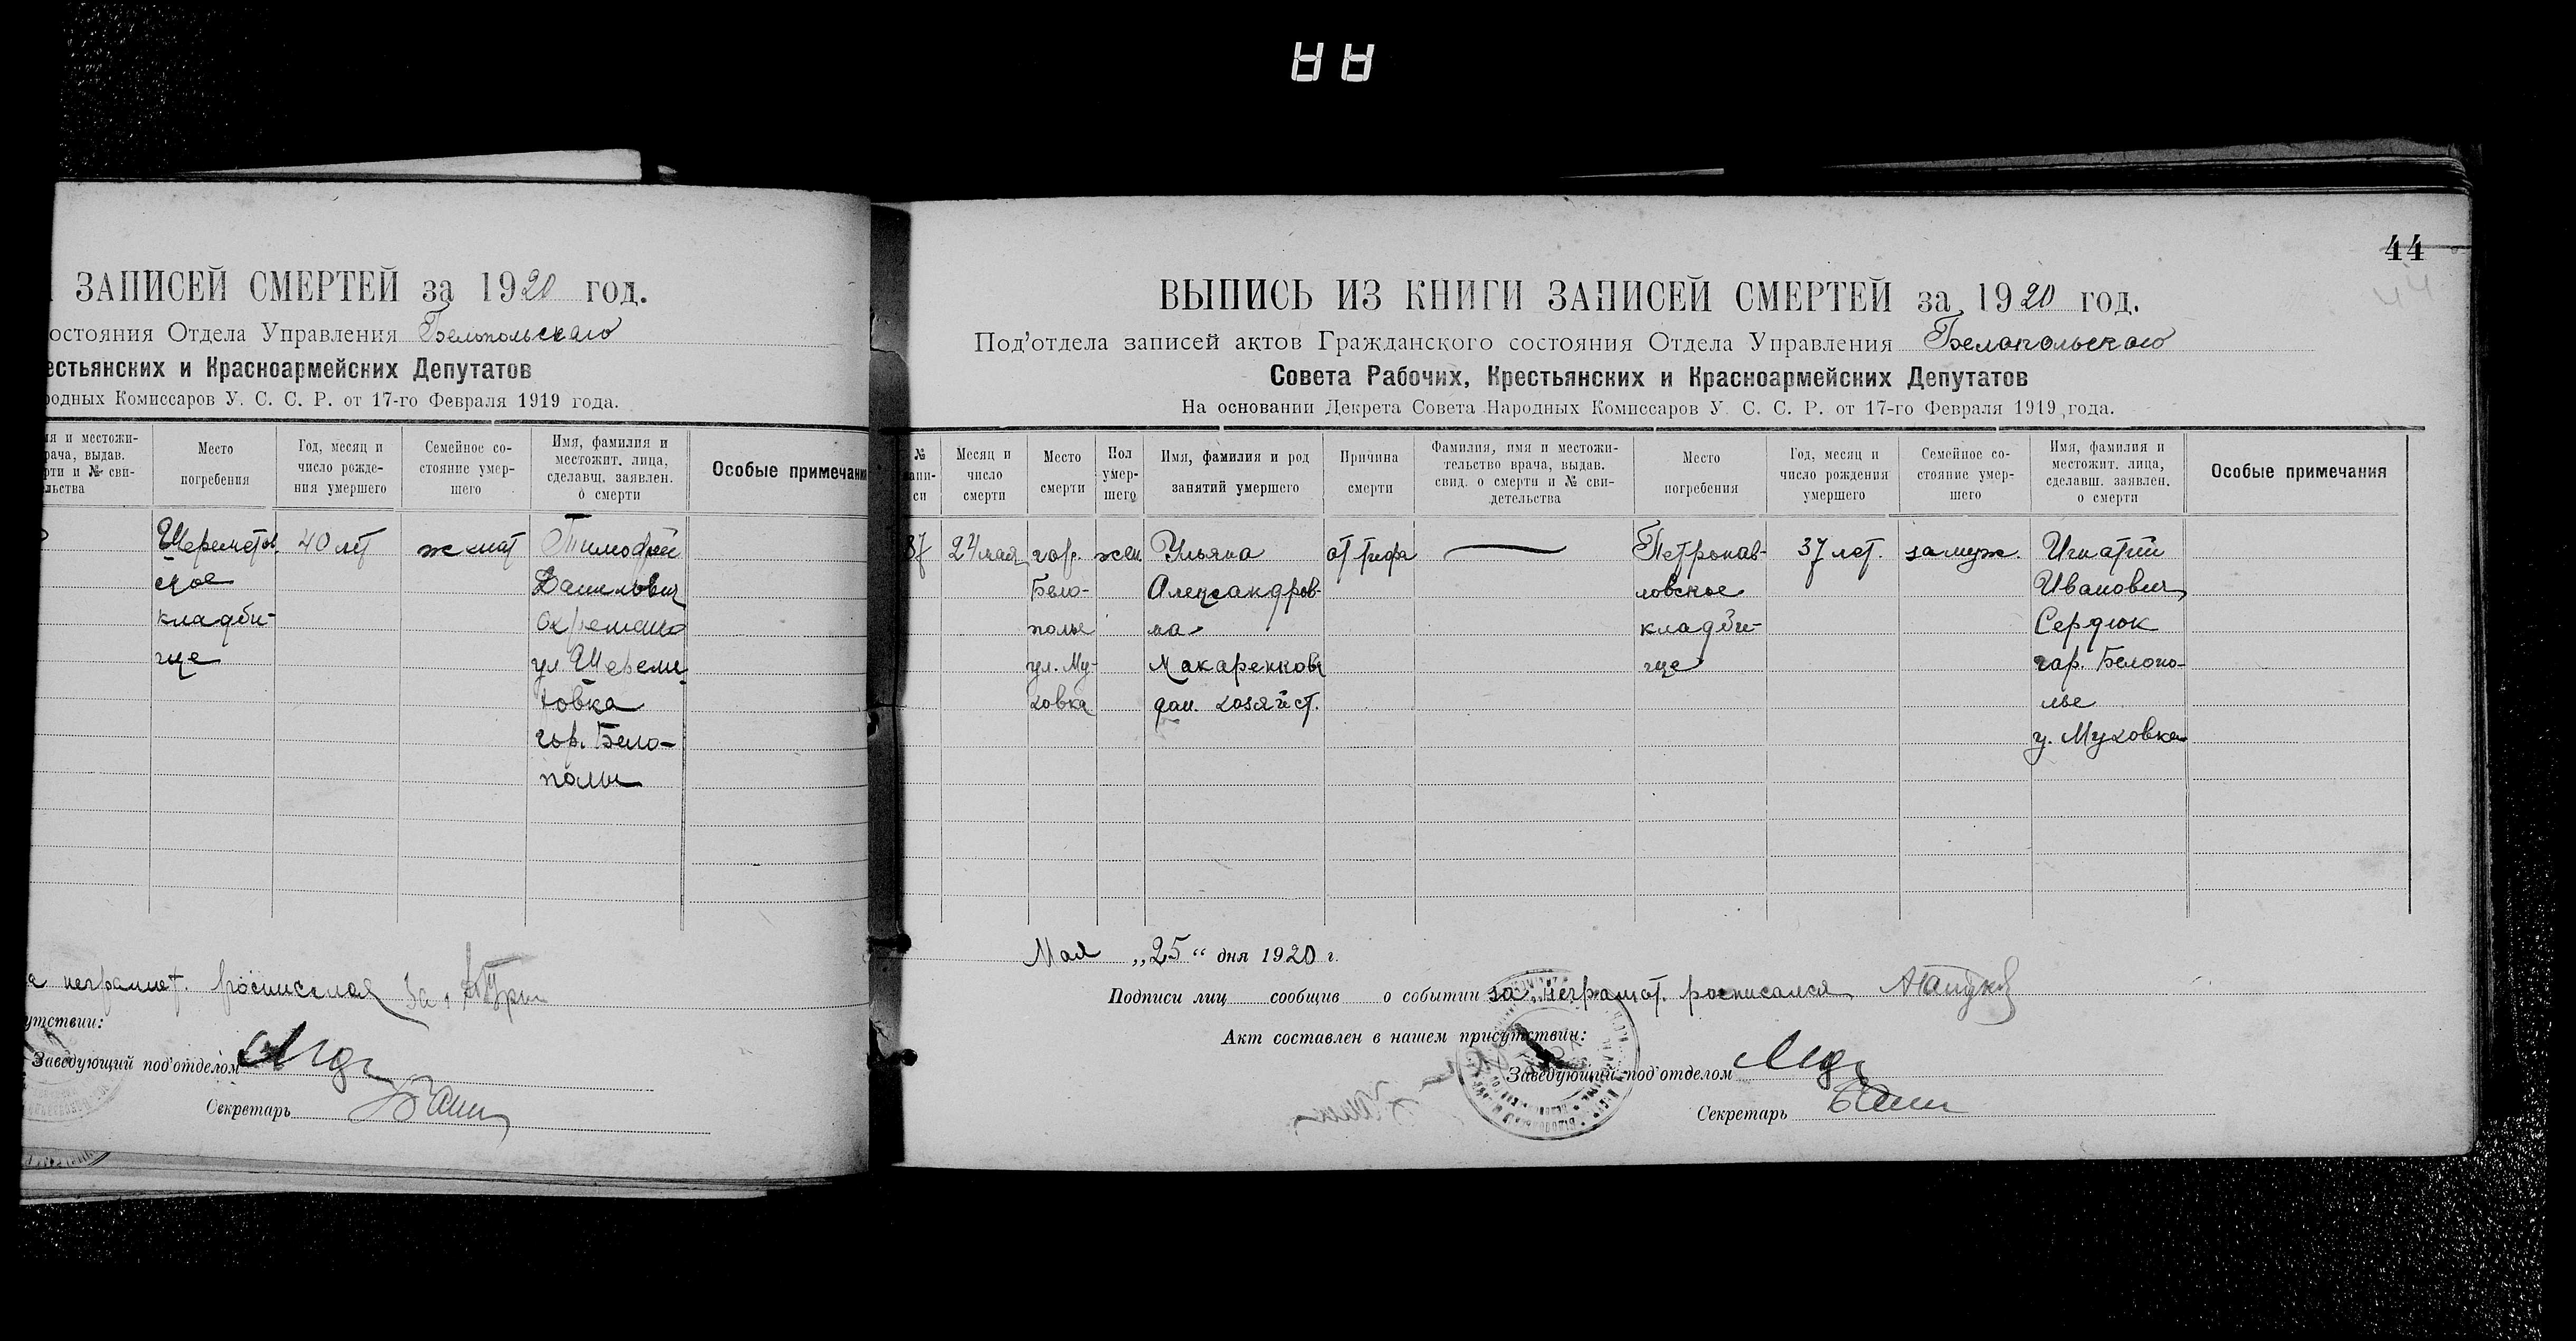 44
ЗАПИСЕЙ СМЕРТЕЙ за 1920 год.
остояния Отдела Управления Белопольскаго
естьянских и Красноармейских Депутатов
родных Комиссаров У. С. С. Р. от 17-го Февраля 1919 года.
я и местожи-
рача, выдав.
рти и № сви-
льства
Место
погребения
Год, месяц и
число рожде-
ния умершего
Семейное со-
стояние умер-
шего
Имя, фамилия и
местожит. лица,
сделавш. заявлен.
о смерти
Особые примечани
Шереметов
ское
кладби-
ще
40 лет
женат
Тимофей
Данилович
ул. Шереме
товка
гор. Бело-
полье
неграмот. росписался за
утствии:
Заведующий под'отделом
Секретарь
ВЫПИСЬ ИЗ КНИГИ ЗАПИСЕЙ СМЕРТЕЙ за 1920 год.
44
Под'отдела записей актов Гражданского состояния Отдела Управления Белопольскаго
Совета Рабочих, Крестьянских и Красноармейских Депутатов
На основании Декрета Совета Народных Комиссаров У. С. С. Р. от 17-го Февраля 1919 года.
№
запи-
си
Месяц и
число
смерти
Место
смерти
Пол
умер-
шего
Имя, фамилия и род
занятий умершего
Причина
смерти
Фамилия, имя и местожи-
тельство врача, выдав.
свид. о смерти и № сви-
детельства
Место
погребения
Год, месяц и
число рождения
умершего
Семейное со-
стояние умер-
шего
Имя, фамилия и
местожит. лица,
сделавш. заявлен.
о смерти
Особые примечания
87
24 мая
гор.
Бело-
полье
ул. Му-
ховка
жен
Ульяна
Александров-
на
Макаренкова
дом. хозяйст.
от тифа
Петропав-
ловское
кладби-
ще
37 лет.
замуж.
Игнатий
Иванович
Сердюк
гор. Белопо-
лье
у. Муховка
Мая „25“ дня 1920 г.
Подписи лиц сообщив о событии за неграмот. росписался
Акт составлен в нашем присутствии:
Заведующий под'отделом
Секретарь